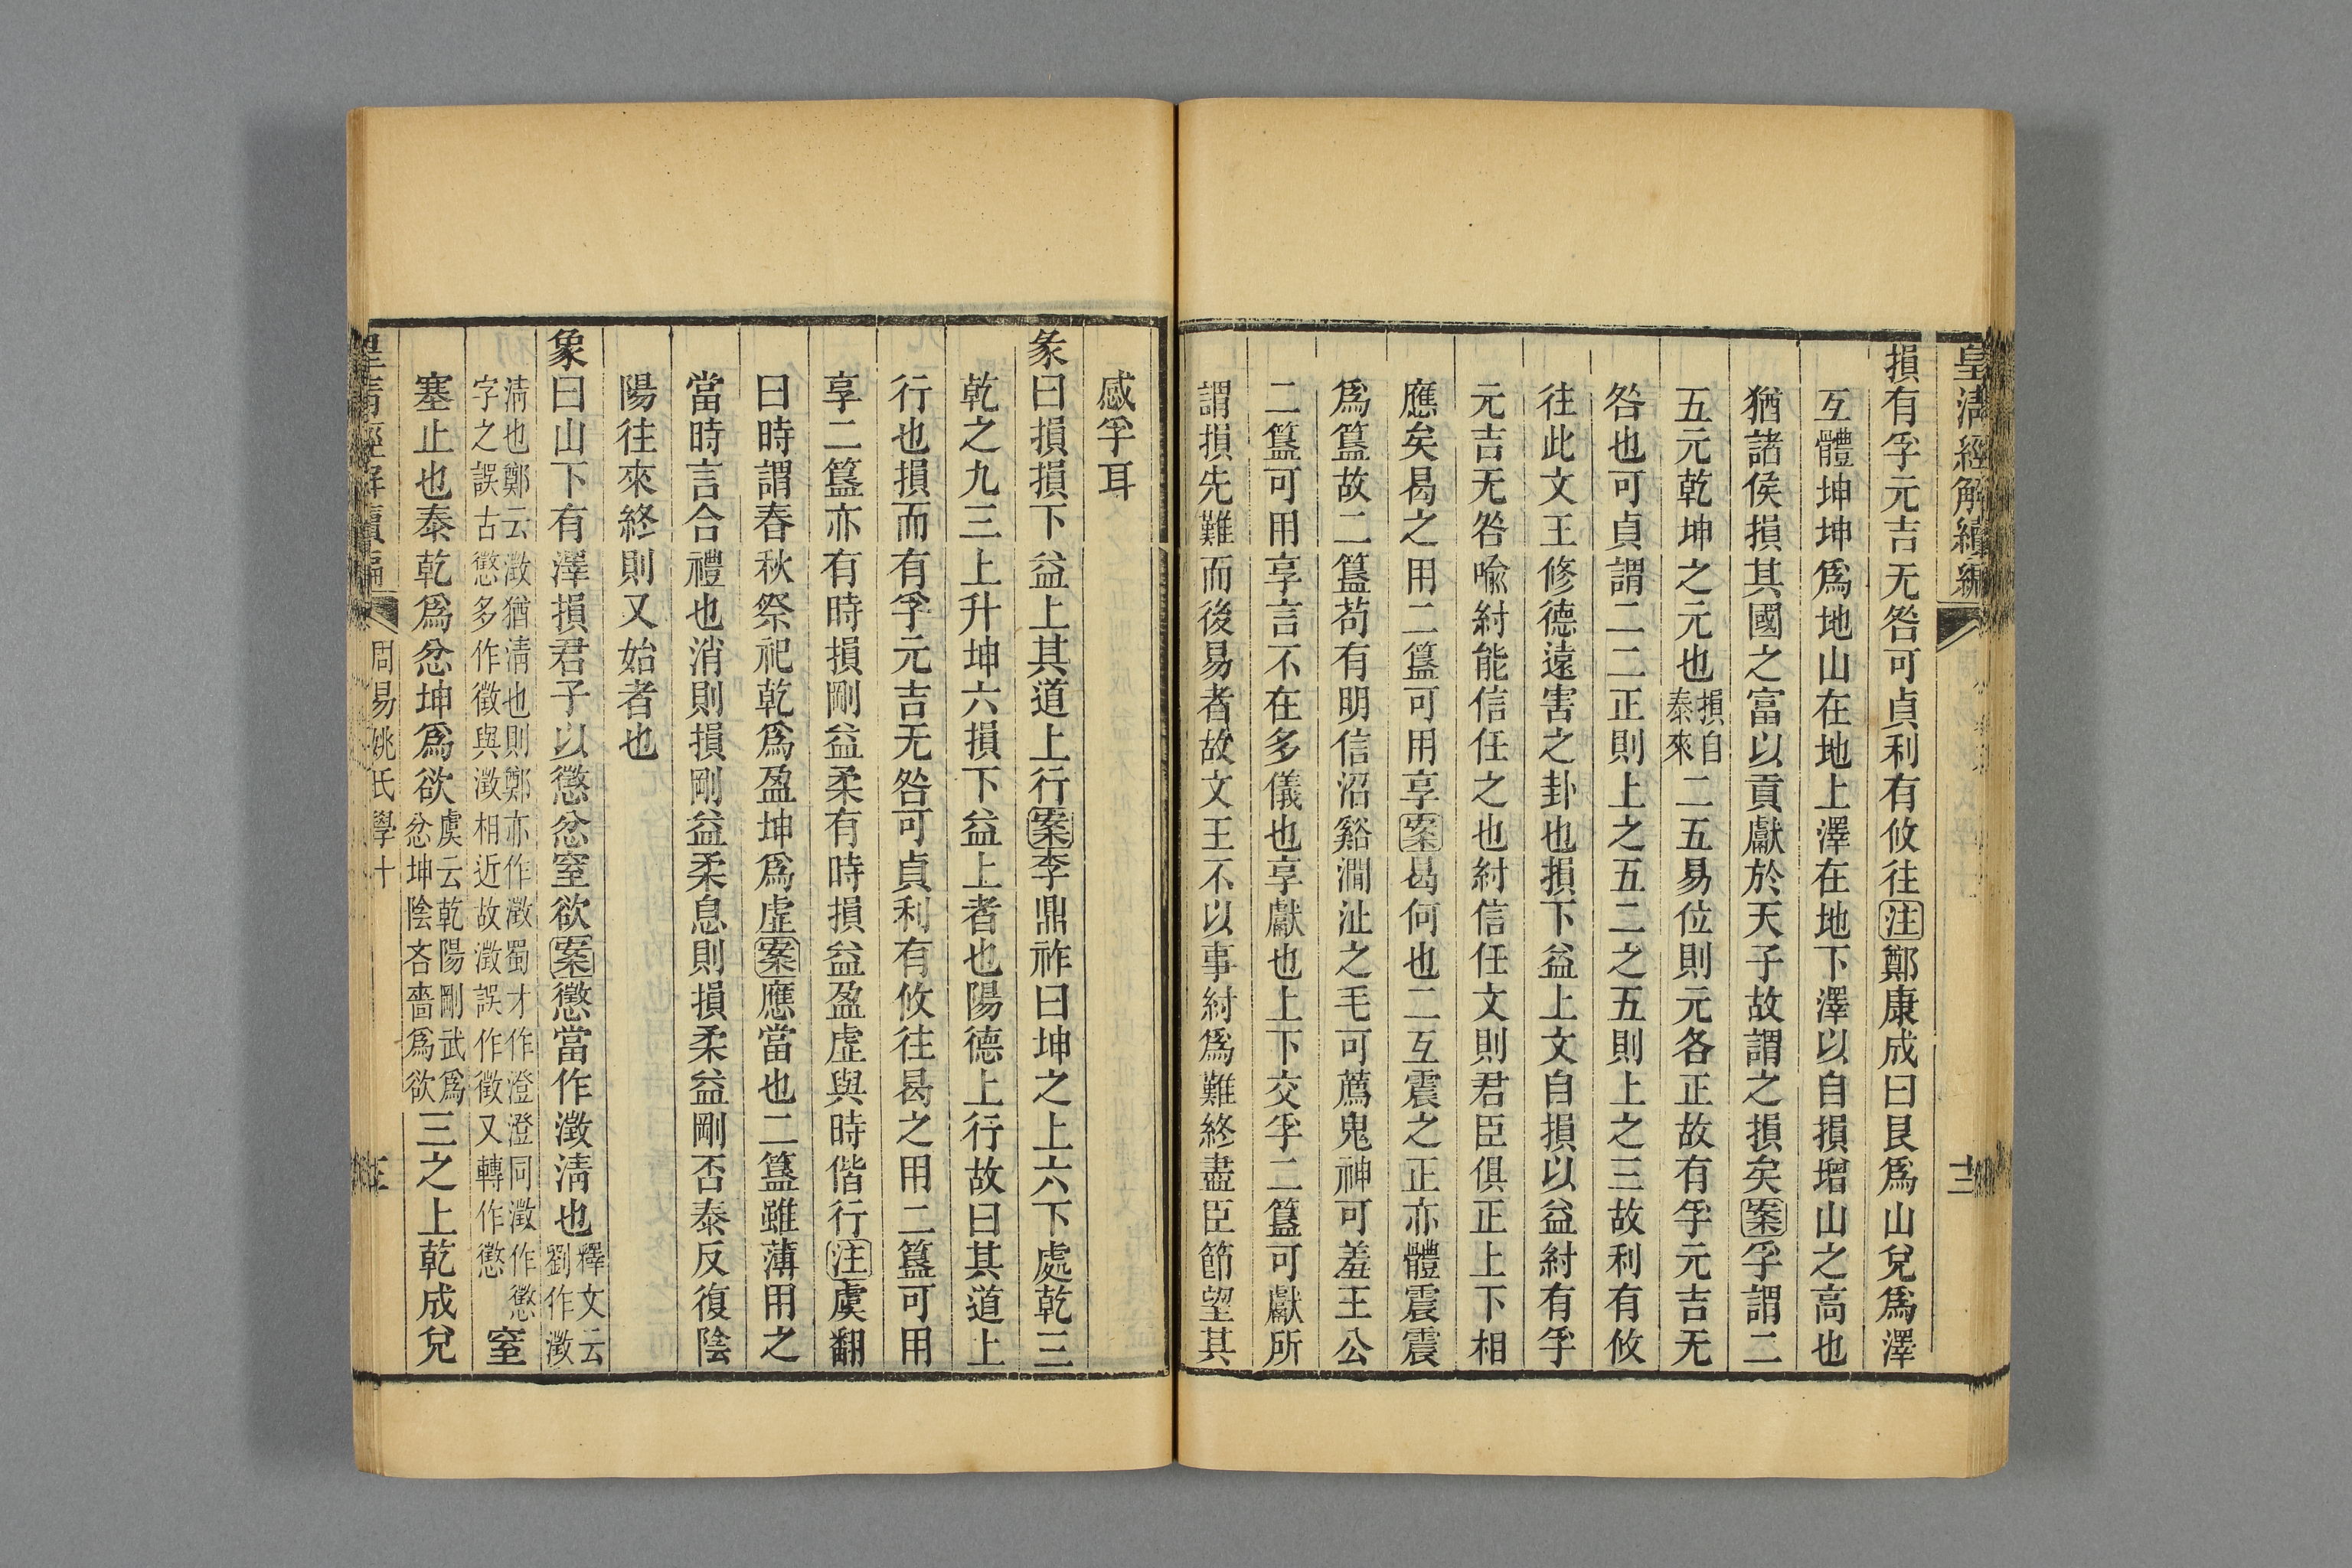 皇淸經解續編
損有孚元吉无咎可貞利有攸往注鄭康成曰艮爲山兌爲澤
互體坤坤爲地山在地上澤在地下澤以自損增山之高也
猶諸侯損其國之富以貢獻於天子故謂之損矣案孚謂二
五元乾坤之元也損自泰來二五易位則元各正故有孚元吉无
咎也可貞謂二二正則上之五二之五則上之三故利有攸
往此文王修德遠害之卦也損下益上文自損以益紂有孚
元吉无咎喻紂能信任之也紂信任文則君臣俱正上下相
應矣曷之用二簋可用享案曷何也二互震之正亦體震震
爲簋故二簋苟有明信沼谿澗沚之毛可薦鬼神可羞王公
二簋可用享言不在多儀也享獻也上下交孚二簋可獻所
謂損先難而後易者故文王不以事紂爲難終盡臣節望其
感孚耳
彖曰損損下益上其道上行案李鼎祚曰坤之上六下處乾三
乾之九三上升坤六損下益上者也陽德上行故曰其道上
行也損而有孚元吉无咎可貞利有攸往曷之用二簋可用
享二簋亦有時損剛益柔有時損益盈虛與時偕行注虞翻
曰時謂春秋祭祀乾爲盈坤爲虛案應當也二簋雖薄用之
當時言合禮也消則損剛益柔息則損柔益剛否泰反復陰
陽往來終則又始者也
象曰山下有澤損君子以懲忿窒欲案懲當作澂淸也釋文云劉作澂
淸也鄭云澂猶淸也則鄭亦作澂蜀才作澄澄同澂作懲字之誤古懲多作徵與澂相近故澂誤作徵又轉作懲窒
塞止也泰乾爲忿坤爲欲虞云乾陽剛武爲忿坤陰吝嗇爲欲三之上乾成兌
周易姚氏學十